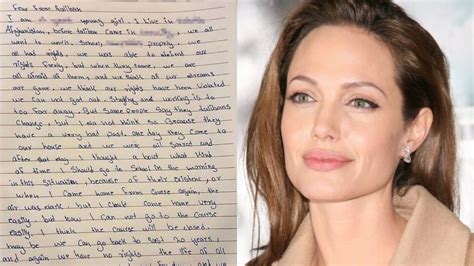 Fear From taliban
I am a young girl. I live in
Afghanistan, before taliban came in we all
went to work, School, properly, we
all had rights, we was able to defend our
rights Freely, but when they come, we are
all afraid of them, and we think all our dreams
are gone. we think our rights have been violated
we can not get out, studying and working is to
too far away. But Some People say they
change, but I do not think so Because they
have a very bad past, one day they come to
our house and we were all scared and
after that day I thought a bout what kind
of time I should go to School in the morning
in this situation, because of their existence, or
when I came home from course again, the
air was dark, but I could come home very
easily, but now I can not go to the course
easily. I think the course will be closed,
may be we can go back to last 20 years,
and again we have no rights the life of all